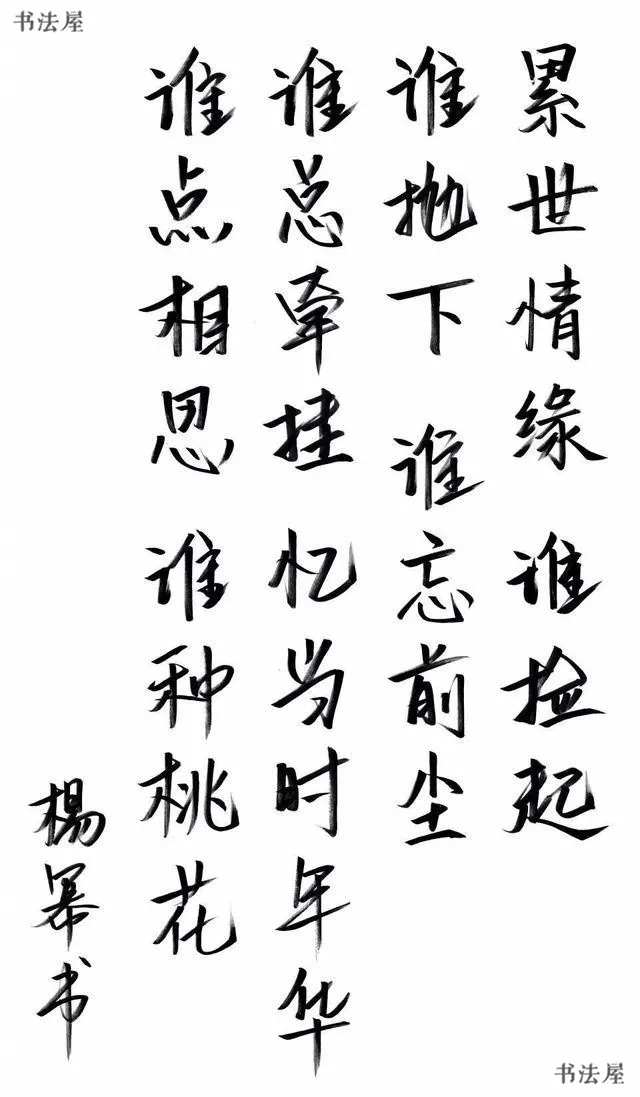 书法屋
累世情缘 谁捡起
谁抛下 谁忘前尘
谁总牵挂 忆当时年华
谁点相思 谁种桃花
楊幂书
书法屋